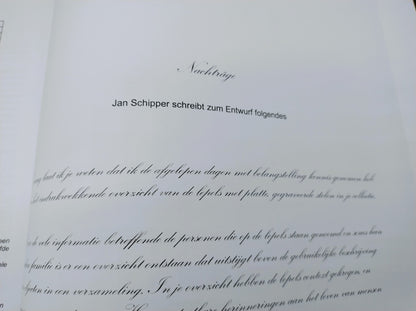 Nachträge
Jan Schipper schreibt zum Entwurf folgendes
laat ik je weten dat ik de afgelopen dagen met belangstelling kennis genomen heb
indrukwekkende overzicht van de lepels met platte, gegraveerde stelen in je collectie.
de informatie betreffende de personen die op de lepels staan genoemd en soms hun
familie is er een overzicht ontstaan dat uitstijgt boven de gebruikelijke beschrijving
in een verzameling. In je overzicht hebben de lepels context gekregen, en
herinneringen aan het leven van mensen